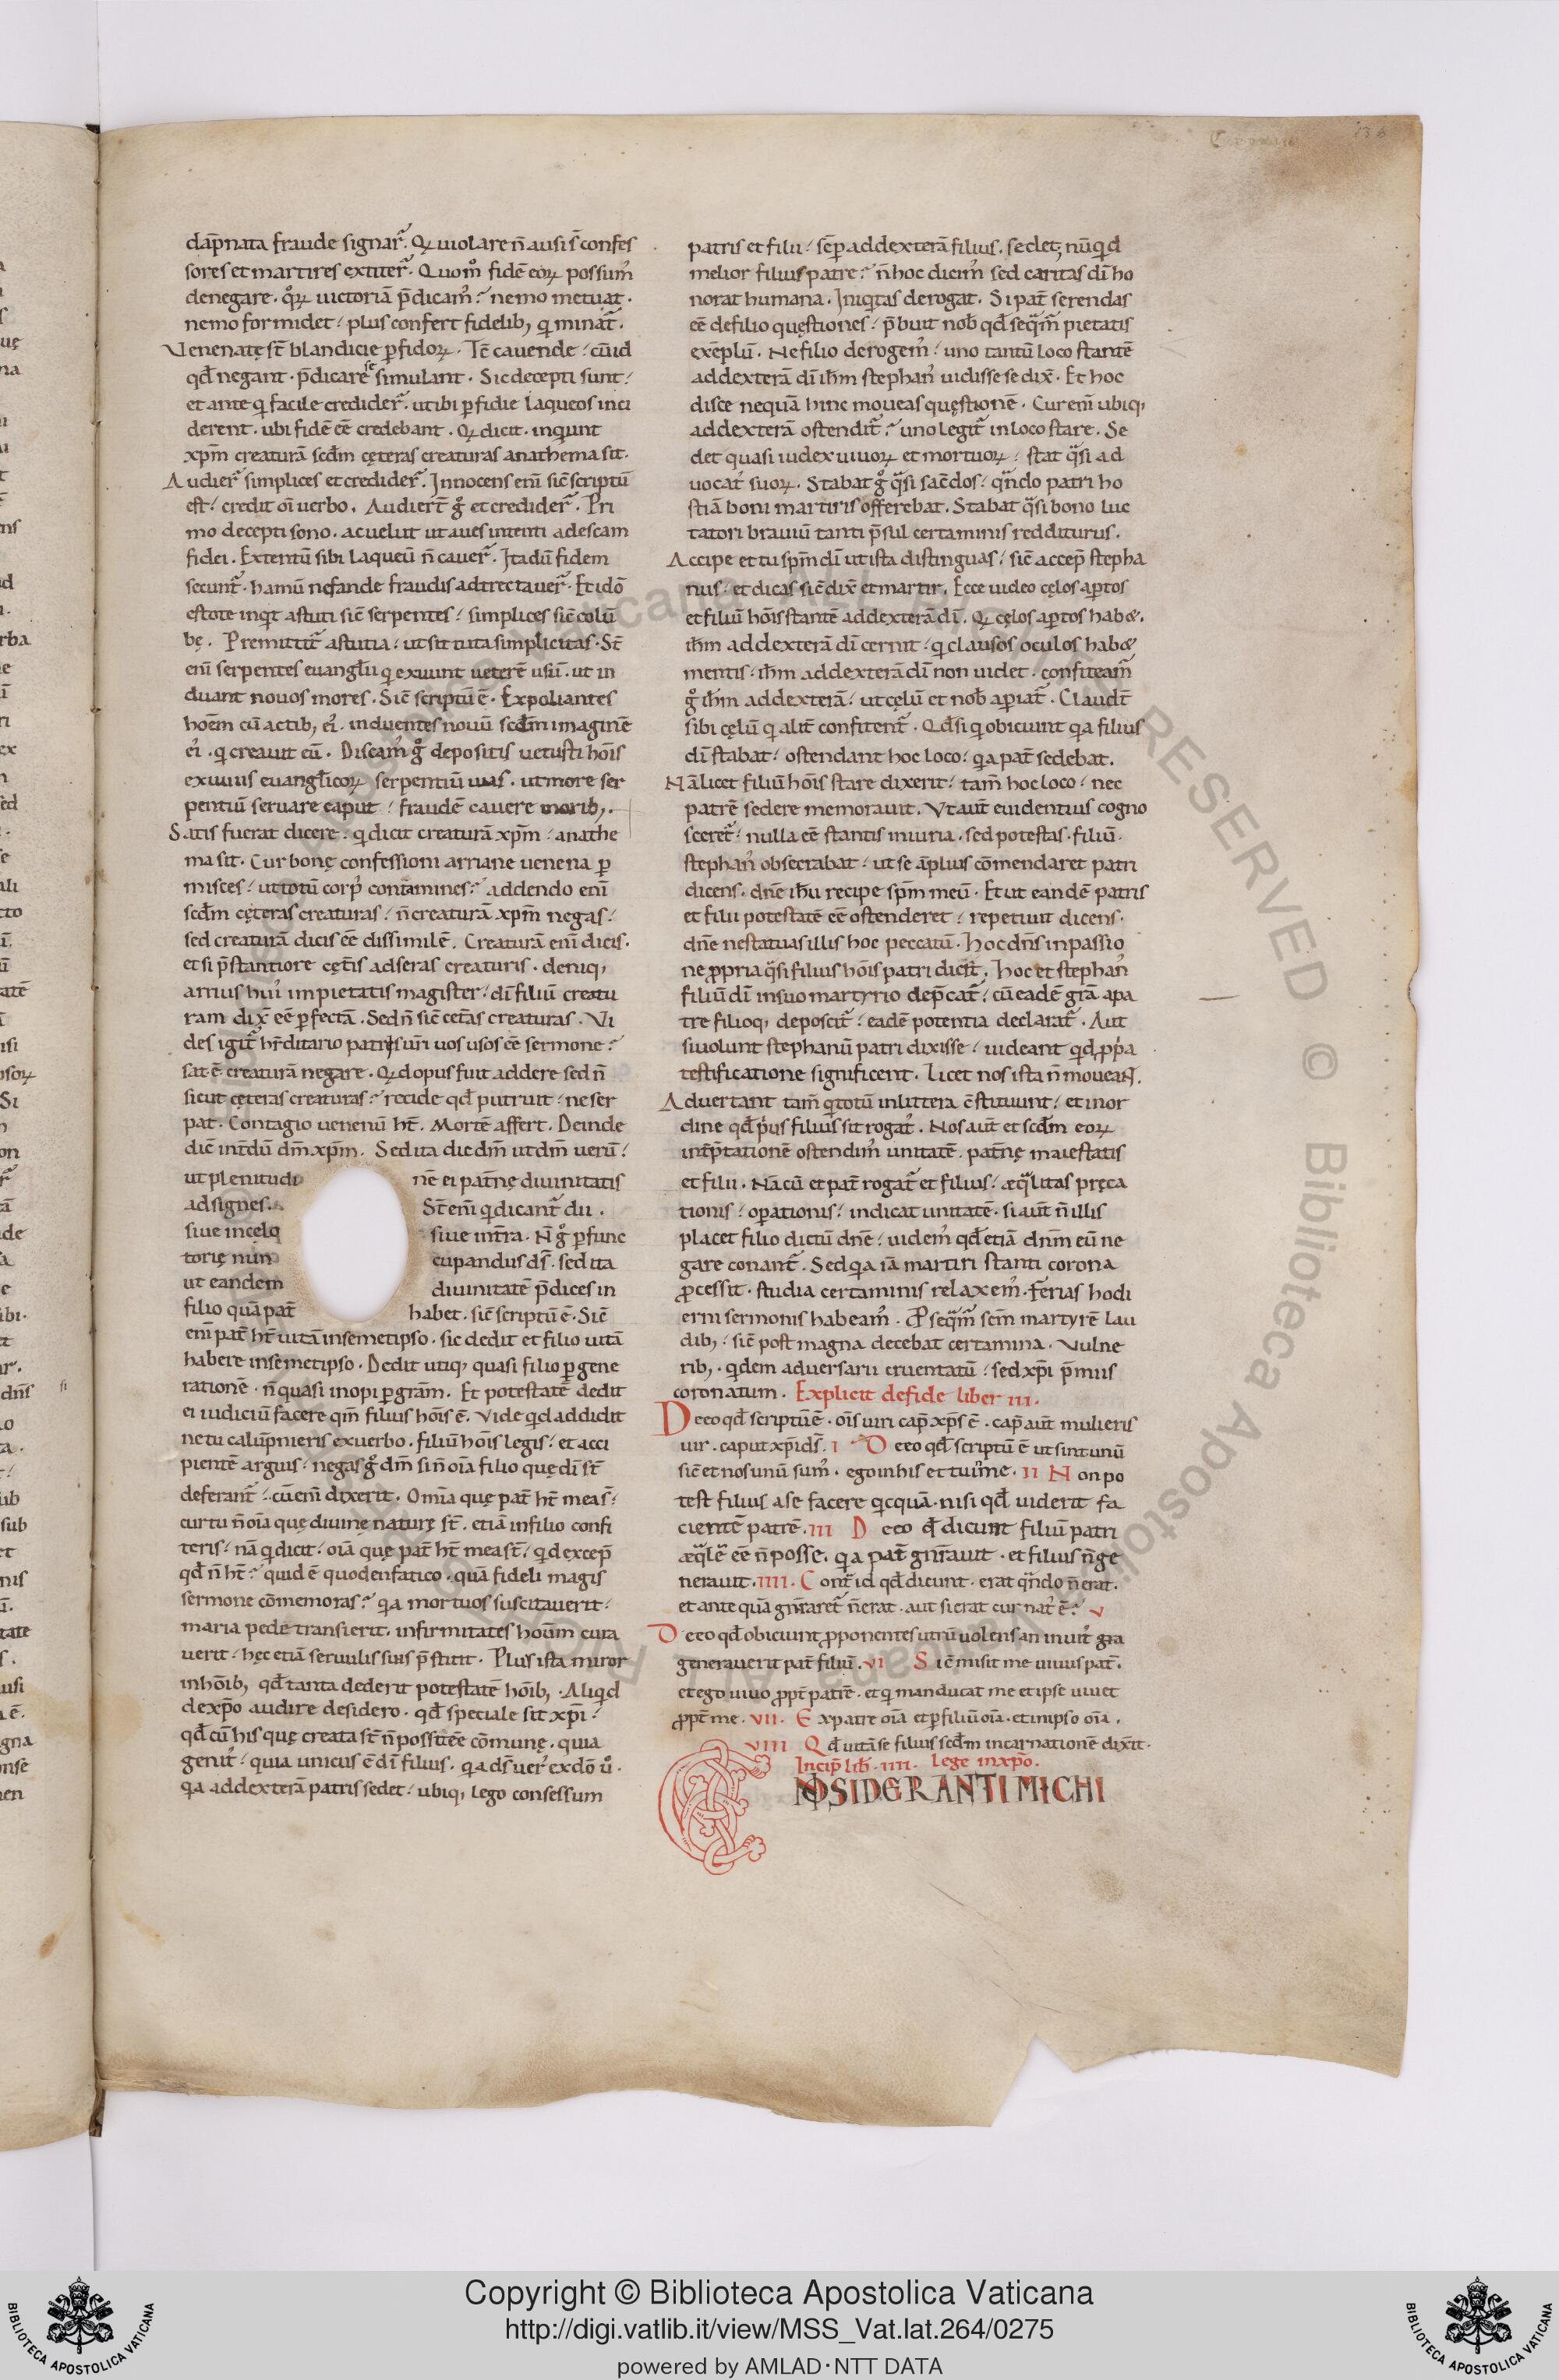 dāpnata fraude signar̃. Qꝛ uiolare n̄ ausi s̄ confes
sores et martires extiter̃. Quom̊ fidē eoꝝ possum᷒
denegare. q̊ꝝ uictoriā p̄dicam᷒? nemo metuat.
nemo formidet / plus confert fidelib; qi minat̃.
Venenatę st̄ blandicie ꝑfidoꝝ. Tc̄ cauende / cū id
qđ negant. p̄dicare se simulant. Sic decepti sunt /
et ante qi facile credider̃. ut ibi ꝑfidie laqueos inci
derent. ubi fidē eē credebant. Qi dicit. inquiunt
xp̄m creaturā scđm cęteras creaturas anathema sit.
Audier̃ simplices et credider̃. Innocens enī sic̄ scriptū
est / credit oī uerbo. Audiert̄ g̊ et credider̃. Pri
mo decepti sono. ac uelut ut aues intenti ad escam
fidei. Extentū sibi laqueū n̄ cauer̃. Ita dū fidem
secunt̃. hamū nefande fraudis adtrectauer̃. Et idō
estote inqt astuti sic̄ serpentes / simplices sic̄ colū
bę. Premittit̃ astutia / ut sit tuta simplicitas. St̄
enī serpentes euanglii qi exuunt ueterē usū. ut in
duant nouos mores. Sic̄ scriptū ē. Expoliantes
hoēm cū actib; ei᷒. induentes nouū scđm imaginē
ei᷒. qi creauit eū. Discam᷒ g̊ depositis uetusti hōis
exuuiis euanglicoꝝ serpentiū uias. ut more ser
pentiū seruare caput / fraudē cauere norib;.
Satis fuerat dicere / qi dicit creaturā xp̄m / anathe
ma sit. Cur bonę confessioni arriane uenena ꝑ
misces / ut totū corp᷒ contamines? addendo enī
scđm cęteras creaturas / n̄ creaturā xp̄m negas /
sed creaturā dicis eē dissimilē. Creaturā enī dicis.
et si p̄stantiore cęt̄is adseras creaturis. deniq;
arrius hui᷒ impietatis magister / dī filiū creatu
ram dix̄ eē ꝑfectā. Sed n̄ sic̄ cet̄as creaturas. Vi
des igit̃ hr̄ditario patris ur̄i uos usos eē sermone?
sat ē creaturā negare. Qid opus fuit addere sed n̄
sicut cęteras creaturas? recide qđ putruit / ne ser
pat. Contagio uenenū ht̄. Mortē affert. Deinde
dic̄ int̄dū dm̄ xp̄m. Sed ita dic dm̄ ut dm̄ uerū /
ut plenitudi nē ei pat̄nę diuinitatis
adsignes. St̄ enī qi dicant̃ dii.
siue in cęlo siue int̄ra. N̄ g̊ ꝑfunc
torię nun cupandus ds̄. sed ita
ut eandem diuinitatē p̄dices in
filio quā pat̄ habet. sic̄ scriptū ē. Sic̄
enī pat̄ ht̄ uitā in semetipso. sic dedit et filio uitā
habere in semetipso. Dedit utiq; quasi filio ꝑ gene
rationē. n̄ quasi inopi ꝑ grām. Et potestatē dedit
ei iudiciū facere qm̄ filius hōis ē. Vide qid addidit
ne tu calūpnieris ex uerbo. filiū hōis legis / et acci
pientē arguis / negas g̊ dm̄ si n̄ oīa filio quę dī st̄
deferant̃ / cū enī dixerit. Omīa quę pat̄ ht̄ mea s̄t /
cur tu n̄ oīa quę diuinę naturę st̄. etiā in filio confi
teris / nā qi dicit / oīa quę pat̄ ht̄ mea st̄ / qid excep̄
qđ n̄ ht̄? quid ē quod enfatico. quā fideli magis
sermone cōmemoras? qia mortuos suscitauerit /
maria pede transierit. infirmitates hoūm cura
uerit / hęc etiā seruulis suis p̄stitit. Plus ista miror
in hōib; qđ tanta dederit potestatē hōib;. Aliqid
de xp̄o audire desidero. qđ speciale sit xp̄i /
qđ cū his quę creata st̄ n̄ possit eē cōmune. quia
genit᷒ / quia unicus ē dī filius. qia ds̄ uer᷒ ex dō ů.
qia ad dexterā patris sedet / ubiq; lego consessum
patris et filii / sēp ad dexterā filius. sedet; nūqid
melior filius patre? n̄ hoc dicim᷒ sed caritas dī ho
norat humana. Iniqitas derogat. Si pat̄ serendas
eē de filio quęstiones / p̄buit nob̄ qđ seq̄m̃ pietatis
exēplū. Ne filio derogem᷒ / uno tantū loco stantē
ad dexterā dī ih̄m stephan᷒ uidisse se dix̄. Et hoc
disce nequā hinc moueas quęstionē. Cur enī ubiq;
ad dexterā ostendit̃? uno legit̃ in loco stare. Se
det quasi iudex uiuoꝝ et mortuoꝝ / stat q̄si ad
uocat᷒ suoꝝ. Stabat g̊ q̄si sacdos / q̄ndo patri ho
stiā boni martiris offerebat. Stabat q̄si bono luc
tatori brauiū tanti p̄sul certaminis redditurus.
Accipe et tu spm̄ dī ut ista distinguas / sic̄ accep̄ stepha
nus / et dicas sic̄ dix̄ et martir. Ecce uideo cęlos aꝑtos
et filiū hōis stantē ad dexterā dī. Qi cęlos aꝑtos hab&.
ih̄m ad dexterā dī cernit / qi clausos oculos hab&
mentis / ih̄m ad dexterā dī non uidet. confiteam̃
g̊ ih̄m ad dexterā / ut cęlū et nob̄ aꝑiat̃. Claudt̄
sibi cęlū qi alit̄ confitent̃. Qđ si qi obiciunt qia filius
dī stabat / ostendant hoc loco / qia pat̄ sedebat.
Nā licet filiū hōis stare dixerit / tam̄ hoc loco / nec
patrē sedere memorauit. Vt aut̄ euidentius cogno
sceret̃ / nulla eē stantis iniuria. sed potestas. filiū.
stephan᷒ obsecrabat / ut se āplius cōmendaret patri
dicens. dn̄e ih̄u recipe spm̄ meū. Et ut eandē patris
et filii potestatē eē ostenderet / repetiuit dicens.
dn̄e ne statuas illis hoc peccatū. Hoc dn̄s in passio
ne ꝓpria q̄si filius hōis patri dicit. Hoc et stephan᷒
filiū dī in suo martyrio dep̄cat̃ / cū eadē grā a pa
tre filioq; deposcit̃ / eadē potentia declarat̃. Aut
si uolunt stephanū patri dixisse / uideant qid ꝓp̄a
testificatione significent. licet nos ista n̄ moueant.
Aduertant tam̄ qi totū in littera ēstituunt / et in or
dine qđ p̄us filius sit rogat᷒. Nos aut̄ et scđm eoꝝ
int̄p̄tationē ostendim᷒ unitatē. pat̄nę maiestatis
et filii. Nā cū et pat̄ rogat̃ et filius / æq̄litas pręca
tionis / oꝑationis / indicat unitatē. si aut̄ n̄ illis
placet filio dictū dn̄e / uidem᷒ qđ etiā dnm̄ eū ne
gare conant̃. Sed qia iā martiri stanti corona
ꝓcessit. studia certaminis relaxem᷒. ferias hodi
erni sermonis habeam᷒. Ꝓseq̄m̃ scm̄ martyrē lau
dib; / sic̄ post magna decebat certamina. Vulne
rib; qidem aduersarii cruentatū / sed xp̄i p̄miis
coronatum. Explicit de fide liber iii.
De eo qđ scriptū ē. oīs uiri cap̄ xp̄s ē. cap̄ aut̄ mulieris
uir. caput xp̄i ds̄. i De eo qđ scriptū ē ut sint unū
sic̄ et nos unū sum᷒. ego in his et tu in me. ii Non po
test filius a se facere qicquā. nisi qđ uiderit fa
cientē patrē. iii De eo qđ dicunt filiū patri
æq̄lē eē n̄ posse. qia pat̄ gnr̄auit. et filius n̄ ge
nerauit. iiii. Cont̄ id qđ dicunt. erat q̄ndo n̄ erat.
et ante quā gnr̄aret̃ n̄ erat. aut si erat cur nat᷒ ē? v
De eo qđ obiciunt ꝓponentes utrū uolens an inuit᷒ gra
generauerit pat̄ filiū. vi Sic̄ misit me uiuus pat̄.
et ego uiuo ꝓpt̄ patrē. et qi manducat me et ipse uiuet
ꝓpt̄ me. vii. Ex patre oīa et ꝑ filiū oīa. et in ipso oīa.
viii Qđ uitā se filius scđm incarnationē dixit.
Incip̄ lib̄. iiii. lege in xp̄o.
CONSIDERANTI MICHI
Copyright © Biblioteca Apostolica Vaticana
http://digi.vatlib.it/view/MSS_Vat.lat.264/0275
powered by AMLAD·NTT DATA
BIBLIOTECA APOSTOLICA VATICANA
BIBLIOTECA APOSTOLICA VATICANA